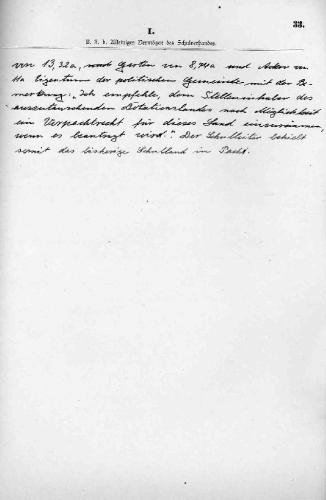 33.
I.
B. K. b. Alleiniges Vermögen des Schulverbandes.
von 13,32 a, und Garten von 8,74 a und Acker von
Ha Eigentum der politischen Gemeinde mit der Be-
merkung: „Ich empfehle, dem Stelleninhaber des
auszutauschenden Dotationslandes nach Möglichkeit
ein Vorpachtrecht für dieses Land einzuräumen,
wenn es beantragt wird". Der Schulleiter behielt
somit das bisherige Schulland in Pacht.